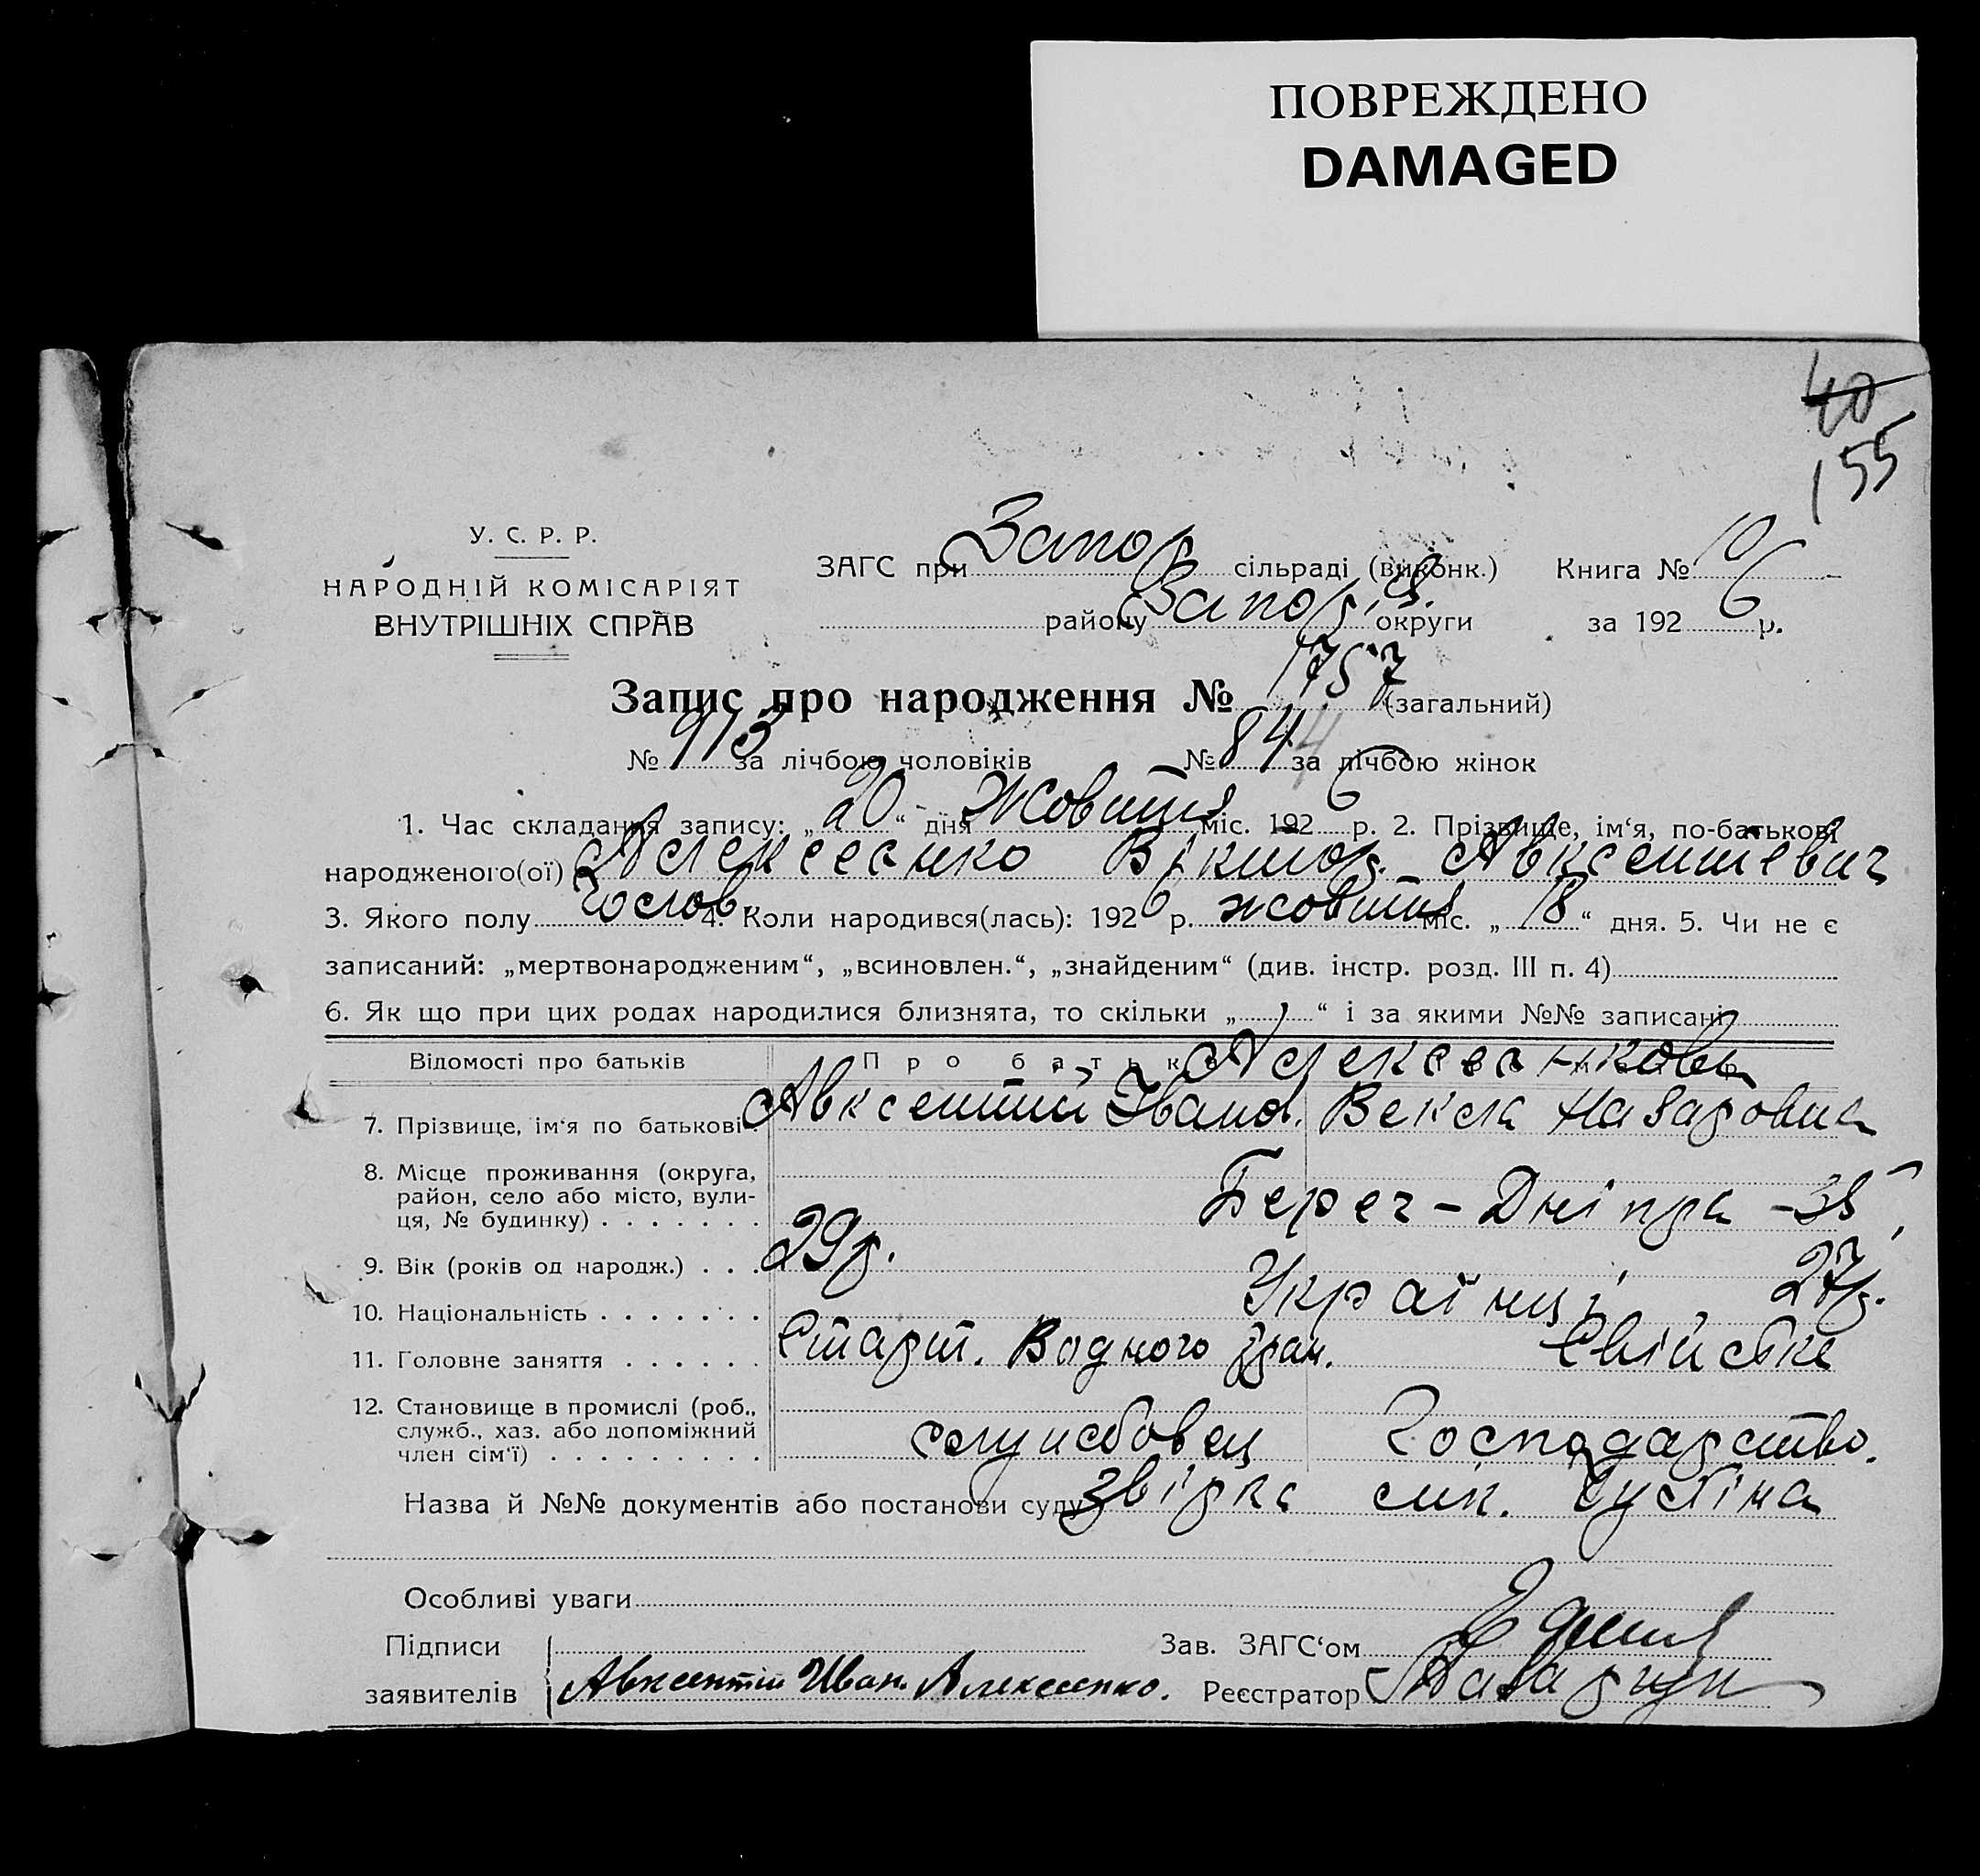 ПОВРЕЖДЕНО
DAMAGED
40
155
У. С. Р. Р.
НАРОДНІЙ КОМІСАРІЯТ
ВНУТРІШНІХ СПРАВ
ЗАГС при Запор сільраді (виконк.)
району Запоріз. округи
Книга № 10
за 192 6 р.
Запис про народження № 1757 (загальний)
№ 913 за лічбою чоловіків № 844 за лічбою жінок
1. Час складання запису: „ 20 “ дня Жовтня міс. 192 6 р. 2. Прізвище, ім'я, по-батькові
народженого(ої) Алексеєнко Віктор Авксентіевич
3. Якого полу чолов. 4. Коли народився(лась): 192 6 р. жовтня міс. „ 18 “ дня. 5. Чи не є
записаний: „мертвонародженим“, „всиновлен.“, „знайденим“ (див. інстр. розд. III п. 4)
6. Як що при цих родах народилися близнята, то скільки „ “ і за якими №№ записані
Відомості про батьків Про батька Алексеєнкови
7. Прізвище, ім'я по батькові Авксентий Іванов. Векла Назаровна
8. Місце проживання (округа,
район, село або місто, вули-
ця, № будинку) Берег - Дніпра - 38
9. Вік (років од народж.) 29 р. 27 р.
10. Національність Українці
11. Головне заняття Старт. Водного Свійське
12. Становище в промислі (роб.,
служб., хаз. або допоміжний
член сім'ї) службовец господарство.
Назва й №№ документів або постанови суду звірка
Особливі уваги
Підписи
заявителів Авксентий Иван. Алексеенко.
Зав. ЗАГС'ом
Реєстратор